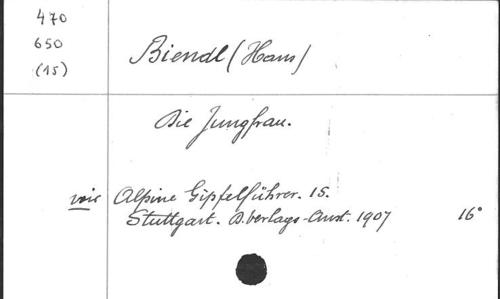 470
650
(15)
Biendl (Hans)
Die Jungfrau.
voir Alpine Gipfelführer. 15.
Stuttgart. D. Verlags-Anst. 1907 16°